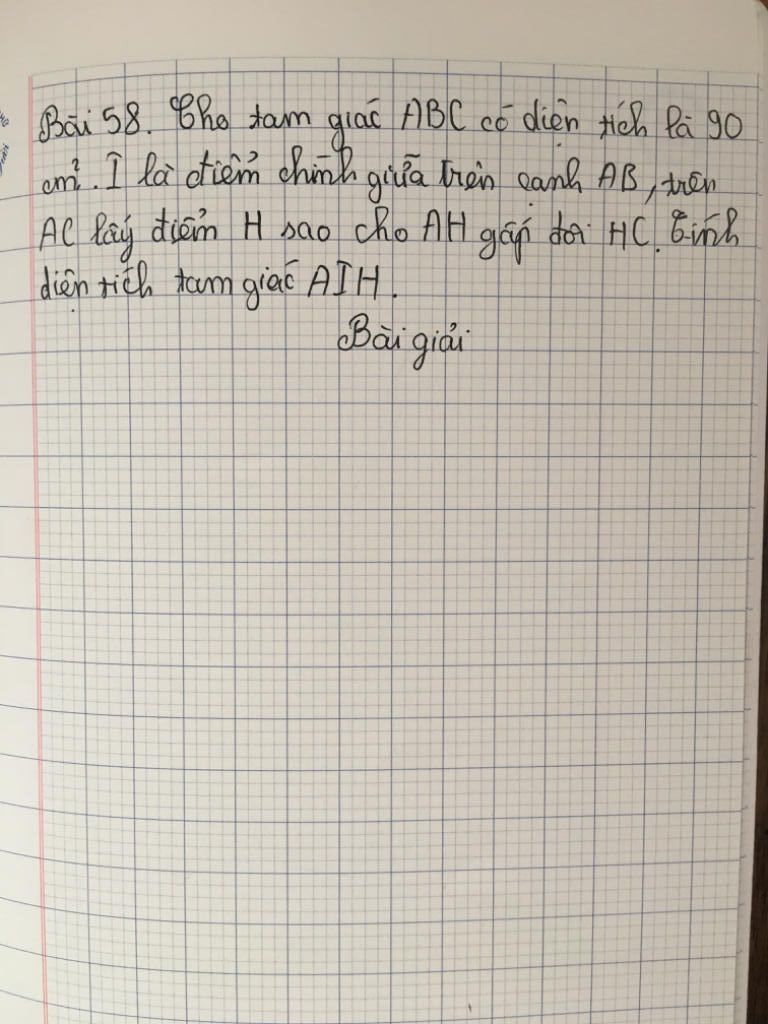 Bài 58. Cho tam giác ABC có diện tích là 90
cm². I là điểm chính giữa trên cạnh AB, trên
AC lấy điểm H sao cho AH gấp đôi HC. Tính
diện tích tam giác AIH.
Bài giải